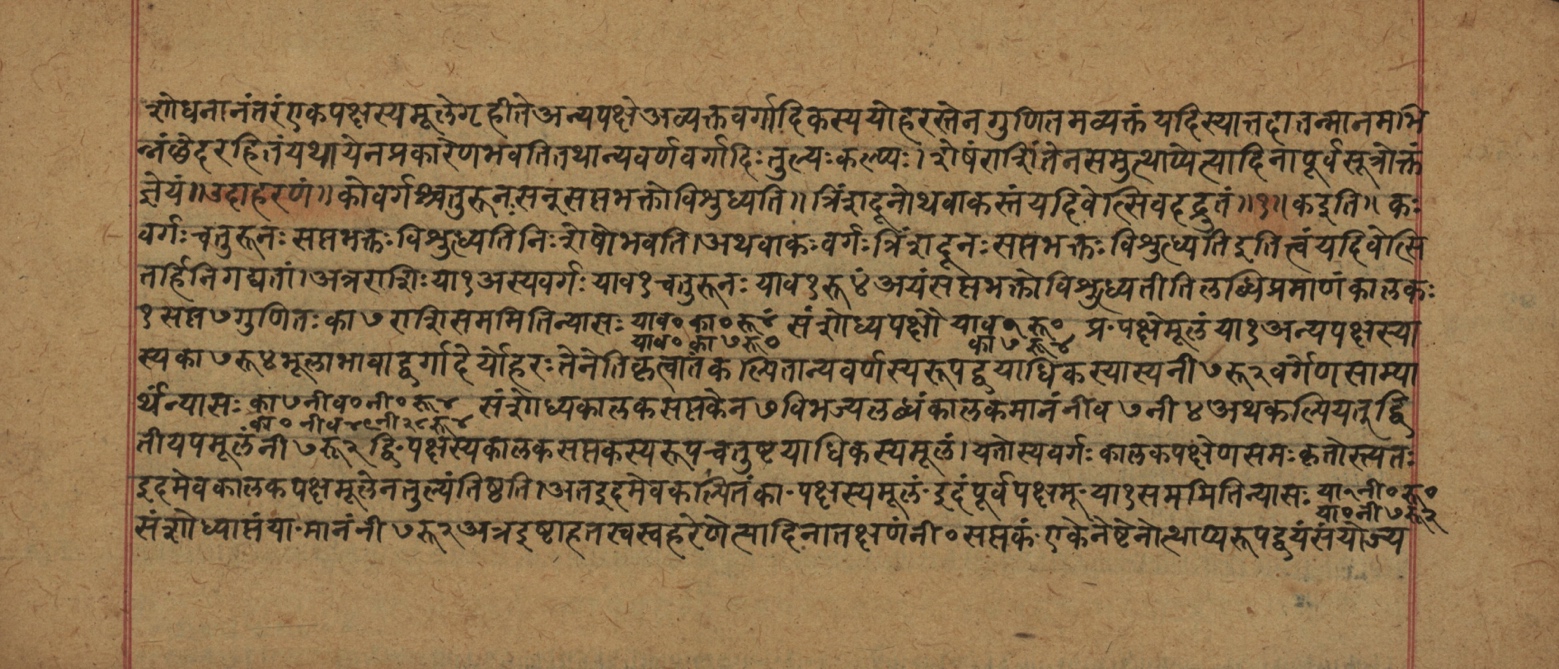 शोधनानंतरंएकपक्षस्यमूलेगृहीतेअन्यपक्षेअव्यक्तवर्गादिकस्ययोहरस्तेनगुणितमव्यक्तं यदिस्यात्तदातन्मानमभि
न्नंछेदरहितंयथायेनप्रकारेणभवतितथान्यवर्णवर्गादिः तुल्यः कल्प्यः। शेषंराशिंतेनसमुत्थाप्येत्यादिनापूर्वसूत्रोक्तं
ज्ञेयं॥उदाहरणं॥ कोवर्गश्चतुरूनः सन् सप्तभक्तोविशुध्यति॥ त्रिंशदूनोथवाकस्तंयदिवेत्सिवदद्रुतं॥१॥ कइति॥ कः
वर्गः चतुरूनः सप्तभक्तः विशुध्यतिनिःशेषोभवति।अथवाकः वर्गः त्रिंशदूनः सप्तभक्तः विशुध्यतिइतित्वंयदिवेत्सि
तर्हिनिगद्यतां।अत्रराशिः या१अस्यवर्गः याव१चतुरूनः याव१रू४ं अयंसप्तभक्तोविशुध्यतीतिलब्धिप्रमाणंकालकः
१सप्त७गुणितः का७राशिसममितिन्यासः याव१ का० रू४ं संशोध्यपक्षौ याव१ रू० प्र॰पक्षेमूलंया१अन्यपक्षस्या
याव० का७रू० का७ रू४
स्यका७रू४मूलाभावाद्वर्गादेर्योहरः तेनेतिकृत्वातं कल्पितान्यवर्णस्यरूपद्वयाधिकस्यास्यनी७रू२वर्गेणसाम्या
र्थंन्यासः का७नीव०नी०रू४ संशोध्यकालकसप्तकेन७विभज्यलब्धंकालकमानंनीव७नी४अथकल्पियतुद्वि
का० नीव४९नी२८रू४
तीयपमूलंनी७रू२द्वि॰पक्षस्यकालकसप्तकस्यरूपचतुष्टयाधिकस्यमूलं। यतोस्यवर्गः कालकपक्षेणसमः कृतोस्त्यतः
इदमेवकालकपक्षमूलेनतुल्यंतिष्ठति।अतइदमेवकल्पितंका॰पक्षस्यमूलं॰इदंपूर्वपक्षमू॰या१सममितिन्यासः या१नी०रू०
या०नी७रू२
संशोध्याप्तंया॰मानंनी७रू२अत्रइष्टाहतस्वस्वहरेणेत्यादिनातक्षणंनी०सप्तकं॰एकेनेष्टेनोत्थाप्यरूपद्वयंसंयोज्य